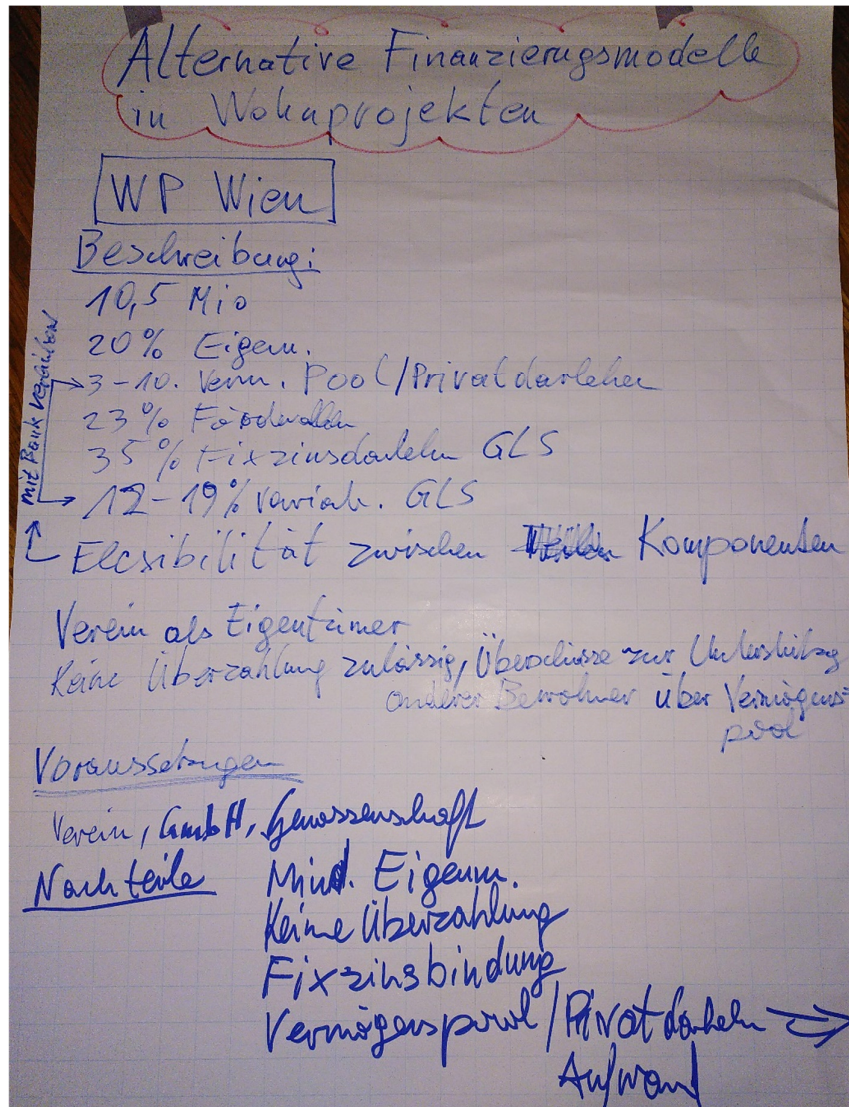 Alternative Finanzierugsmodelle
in Wohnprojekten
WP Wien
Beschreibung:
10,5 Mio
20% Eigenm.
3-10. Verm. Pool/Privatdarlehen
23% Förderdarlehen
35% Fixzinsdarlehn GLS
12-19% variab. GLS
mit Bank vereinbart
Flexibilität zwischen Komponenten
Verein als Eigentümer
Keine Überzahlung zulässig, Überschüsse zur Unterstützung
anderer Bewohner über Vermögens-
pool
Voraussetzungen
Verein, GmbH, Genossenschaft
Nachteile Mind. Eigenm.
Keine Überzahlung
Fixzinsbindung
Vermögenspool/Privatdarlehn
Aufwand